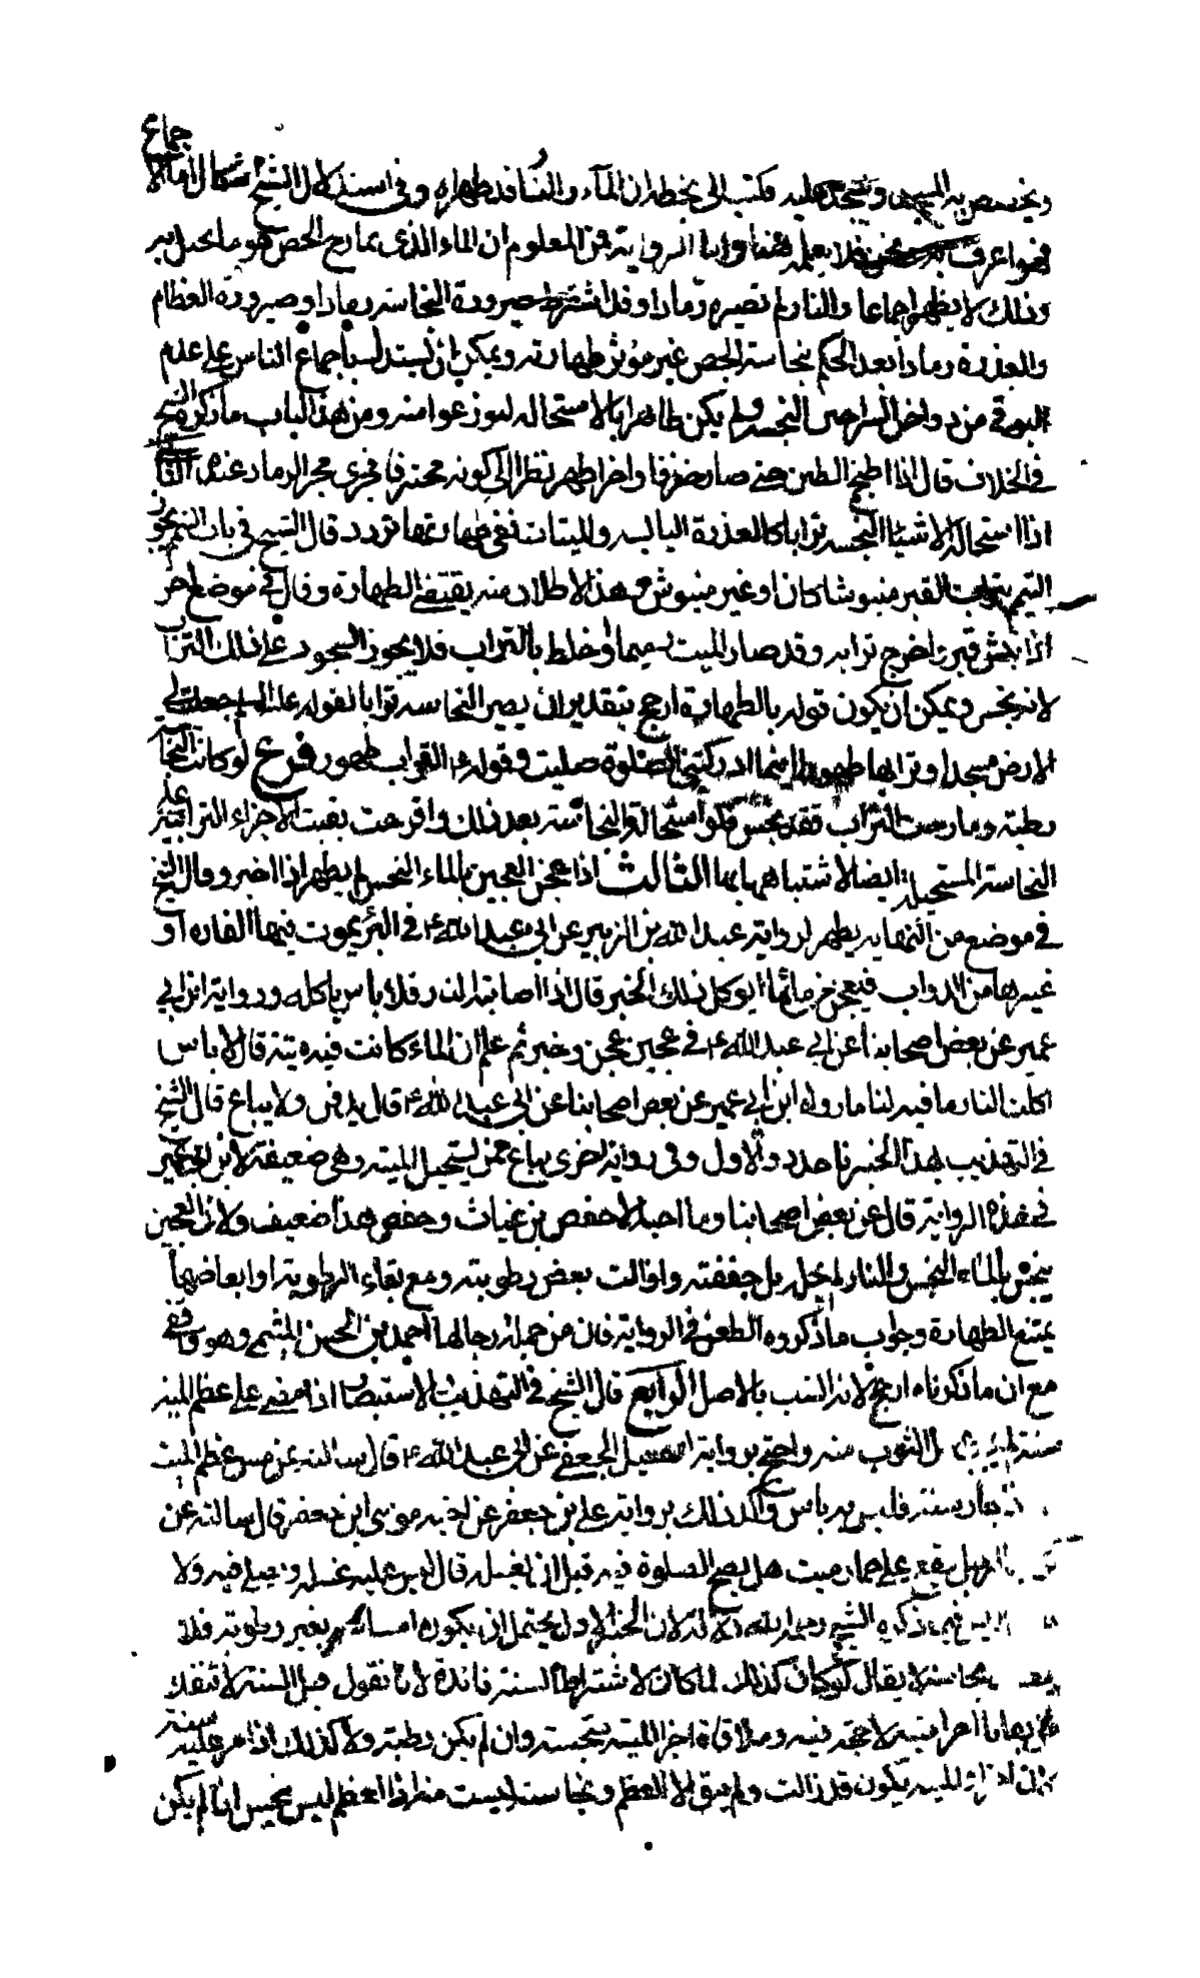 ويجصص به المسجد ويسجد عليه فكتب الي بخطه ان الماء والنار قد طهراه وفي استدلال الشيخ اشكال اما الاجماع
فهو اعرف فلا يعلمه هنا واما الرواية فمن المعلوم ان الماء الذي يمازج الجص هو ما يحيل به
وذلك لا يطهر اجماعا والنار لم تصيره رمادا وقد اشترط صيرورة النجاسة رمادا وصيرورة العظام
والعذرة رمادا بعد الحكم بنجاسة الجص غير مؤثر طهارته ويمكن ان يستدل باجماع الناس على عدم
التوقي من دواخن السراجين النجسة ولو لم يكن طاهرا بالاستحالة لتورعوا منه ومن هذا الباب ما ذكره الشيخ
في الخلاف قال اذا طبخ الطين حتى صار خزفا او اجرا طهر نظرا الى كونه فجرى مجرى الرماد عنده
اذا استحالة الاشياء النجسة ترابا كالعذرة اليابسة والميتات ففي طهارتها تردد قال الشيخ في باب التيمم يجوز
التيمم بتراب القبر منبوشا كان او غير منبوش وهذا الاطلاق منه يقتضي الطهارة وقال في موضع اخر
اذا نبش قبر واخرج ترابه وقد صار الميت رميما واختلط بالتراب فلا يجوز السجود على ذلك التراب
لانه نجس ويمكن ان يكون قوله بالطهارة ارجح بتقدير ان يصير النجاسة ترابا لقوله عليه السلام جعلت لي
الارض مسجدا وترابها طهورا اينما ادركتني الصلوة صليت وقوله ع التراب طهور فرع لو كانت النجاسة
رطبة ومازجت التراب فقد نجس فلو استحالة النجاسة بعد ذلك وامتزجت بقيت الاجزاء الترابية على
النجاسة المستحيلة ايضا لاشتباهها بها الثالث اذا عجن العجين بالماء النجس لم يطهر اذا خبز وقال الشيخ
في موضع من النهاية يطهر لرواية عبد الله بن الزبير عن ابي عبد الله ع في البئر يموت فيها الفاره او
غيرها من الدواب فيعجن من مائها ايوكل ذلك الخبز قال اذا اصابته النار فلا باس باكله ورواية ابن ابي
عمير عن بعض اصحابنا عن ابي عبد الله ع في عجين عجن وخبز ثم علم ان الماء كانت فيه ميتة قال لا باس
اكلت النار ما فيه لنا ما رواه ابن ابي عمير عن بعض اصحابنا عن ابي عبد الله ع قال يدفن ولا يباع قال الشيخ
في التهذيب بهذا الخبر ناخذ دون الاول وفي رواية اخرى يباع ممن يستحل الميتة وهي ضعيفة لان ابن ابي عمير
في هذه الرواية قال عن بعض اصحابنا وما احسبه الا حفص بن غياث وحفص هذا ضعيف ولان العجين
ينجس بالماء النجس والنار لم تحله بل جففته وازالت بعض رطوبته ومع بقاء الرطوبة او ابعاضها
يمتنع الطهارة وجواب ما ذكروه الطعن في الرواية فان من جملة رجالها احمد بن الحسن الميثمي وهو واقفي
مع ان ما ذكرناه ارجح لانه انسب بالاصل الرابع قال الشيخ في التهذيب والاستبصار اذا مضى على عظم الميت
سنة لم يجب غسل الثوب منه واحتج برواية اسمعيل الجعفي عن ابي عبد الله ع قال سالته عن مس عظم الميت
قال اذا جاز سنة فليس به باس واكد ذلك برواية علي بن جعفر عن اخيه موسى ابن جعفر قال سالته عن
الرجل يقع على حمار ميت هل يصح الصلوة فيه قبل ان يغسله قال ليس عليه غسله وليصل فيه ولا
باس وليس فيما ذكره الشيخ رحمه الله دلالة لان الخبر الاول يحتمل ان يكون امسه بغير رطوبة فلا
ينجس لا يقال لو كان كذلك لما كان لاشتراط السنة فائدة لانا نقول قبل السنة لا تنفك
لاحقة فيه وملاقاة اجزاء الميتة منجسة وان لم يكن رطبة ولا كذلك اذا مر عليه سنة
فان اجزاء الميتة يكون قد زالت ولم يبق الا العظم ونجاسته ليست فان العظم ليس بنجس اذا لم يكن